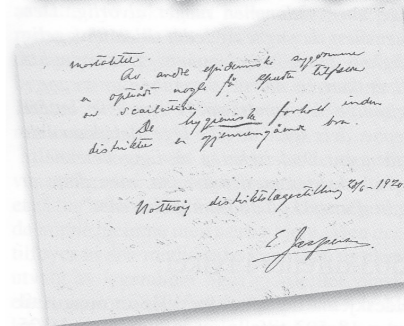 mortalitet.
Av andre epidemiske sygdomme
er optrådt nogle få spredte tilfælde
av scarlatina.
De hygieniske forhold inden
distriktet er gjennemgående bra.
Nøtterøy distriktslægestilling 20/6-1920
E. Jespersen